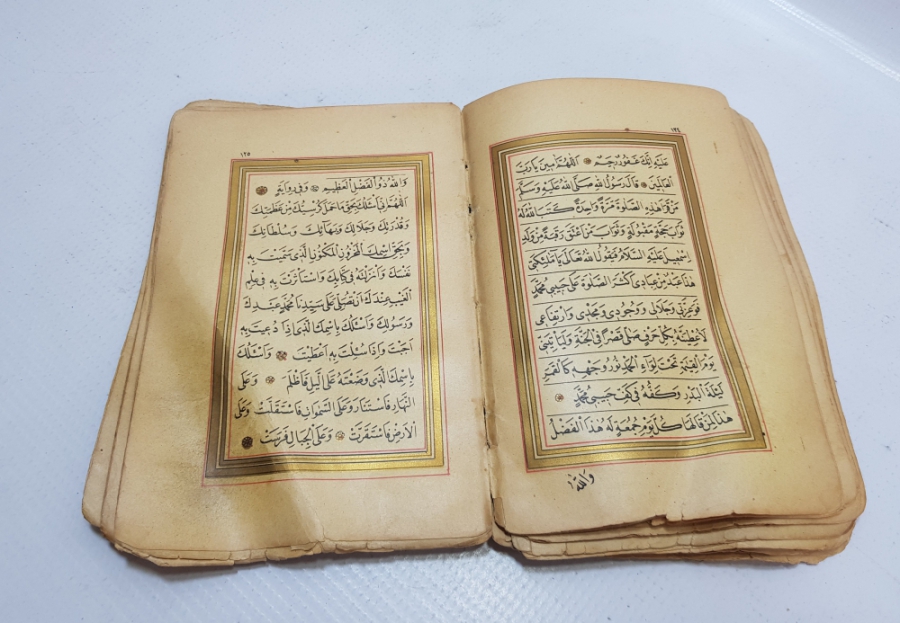 ١٢٤
عَلَيْهِ اِنَّكَ غَفُورٌ رَحِيمٌ اَللّٰهُمَّ اٰمِينَ يَا رَبَّ
الْعَالَمِينَ قَالَ رَسُولُ اللهِ صَلَّى اللهُ عَلَيْهِ وَسَلَّمَ
مَنْ قَرَاَ هٰذِهِ الصَّلٰوةَ مَرَّةً وَاحِدَةً كَتَبَ اللهُ لَهُ
ثَوَابَ حَجَّةٍ مَقْبُولَةٍ وَثَوَابَ مَنْ اَعْتَقَ رَقَبَةً مِنْ وَلَدِ
اِسْمٰعِيلَ عَلَيْهِ السَّلَامُ فَيَقُولُ اللهُ تَعَالٰى يَا مَلٰئِكَتِى
هٰذَا عَبْدٌ مِنْ عِبَادِى اَكْثَرَ الصَّلٰوةَ عَلٰى حَبِيبِى مُحَمَّدٍ
فَوَعِزَّتِى وَجَلَالِى وَوُجُودِى وَمَجْدِى وَارْتِفَاعِى
لَاُعْطِيَنَّهُ بِكُلِّ حَرْفٍ صَلّٰى قَصْرًا فِى الْجَنَّةِ وَلَيَأْتِيَنِّى
يَوْمَ الْقِيٰمَةِ تَحْتَ لِوَاءِ الْحَمْدِ نُورُ وَجْهِهِ كَالْقَمَرِ
لَيْلَةَ الْبَدْرِ وَكَفُّهُ فِى كَفِّ حَبِيبِى مُحَمَّدٍ
هٰذَا لِمَنْ قَالَهَا كُلَّ يَوْمِ جُمُعَةٍ لَهُ هٰذَا الْفَضْلُ
وَاللهُ
١٢٥
وَاللهُ ذُو الْفَضْلِ الْعَظِيمِ وَفِى رِوَايَةٍ
اَللّٰهُمَّ اِنِّى اَسْئَلُكَ بِحَقِّ مَا حَمَلَ كُرْسِيُّكَ مِنْ عَظَمَتِكَ
وَقُدْرَتِكَ وَجَلَالِكَ وَبَهَائِكَ وَسُلْطَانِكَ
وَبِحَقِّ اسْمِكَ الْمَخْزُونِ الْمَكْنُونِ الَّذِى سَمَّيْتَ بِهِ
نَفْسَكَ وَاَنْزَلْتَهُ فِى كِتَابِكَ وَاسْتَأْثَرْتَ بِهِ فِى عِلْمِ
الْغَيْبِ عِنْدَكَ اَنْ تُصَلِّىَ عَلٰى سَيِّدِنَا مُحَمَّدٍ عَبْدِكَ
وَرَسُولِكَ وَاَسْئَلُكَ بِاسْمِكَ الَّذِى اِذَا دُعِيتَ بِهِ
اَجَبْتَ وَاِذَا سُئِلْتَ بِهِ اَعْطَيْتَ وَاَسْئَلُكَ
بِاسْمِكَ الَّذِى وَضَعْتَهُ عَلَى الَّيْلِ فَاَظْلَمَ وَعَلَى
النَّهَارِ فَاسْتَنَارَ وَعَلَى السَّمٰوَاتِ فَاسْتَقَلَّتْ وَعَلَى
الْاَرْضِ فَاسْتَقَرَّتْ وَعَلَى الْجِبَالِ فَرَسَتْ